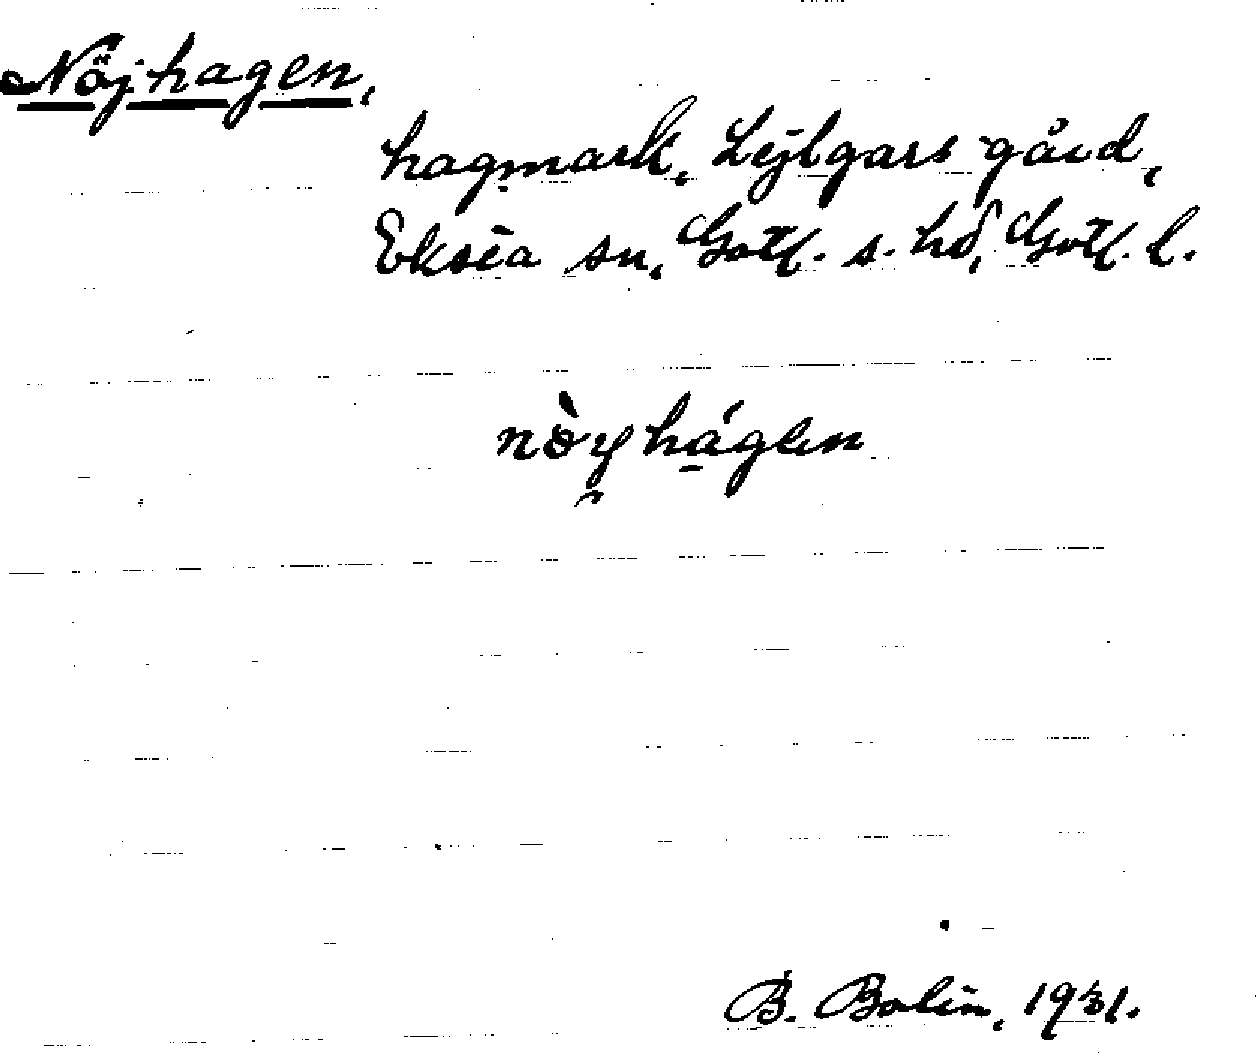 Nöjhagen,
hagmark, Lejlgars gård,
Eksta sn, Gotl. s. hd, Gotl. l.
nò̤yhá̱gen
B. Bolin, 1931.